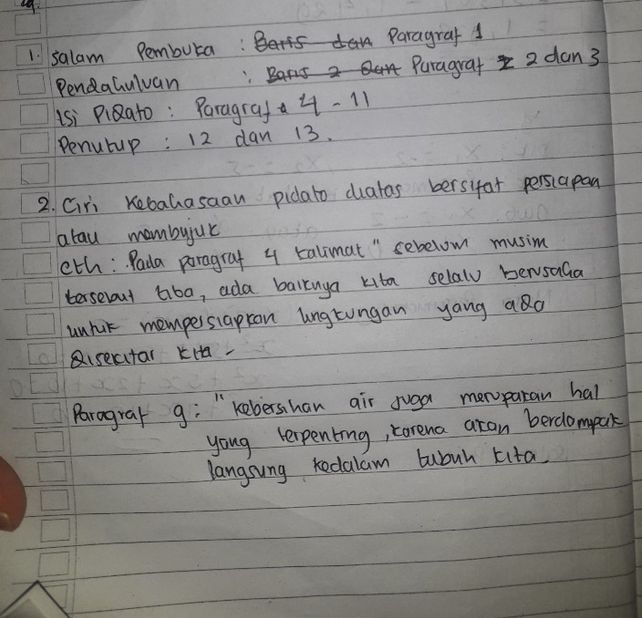 1. Salam Pembuka : Baris dan Paragraf 1
Pendahuluan : Baris 2 dan Paragraf 2 2 dan 3
Isi Pidato : Paragraf 4 - 11
Penutup : 12 dan 13.
2. Ciri Kebahasaan pidato diatas bersifat persiapan
atau membujuk
cth : Pada paragraf 4 kalimat "sebelum musim
tersebut tiba, ada baiknya kita selalu berusaha
untuk mempersiapkan lingkungan yang ada
disekitar kita -
Paragraf 9 : "kebersihan air juga merupakan hal
yang terpenting, karena akan berdampak
langsung kedalam tubuh kita